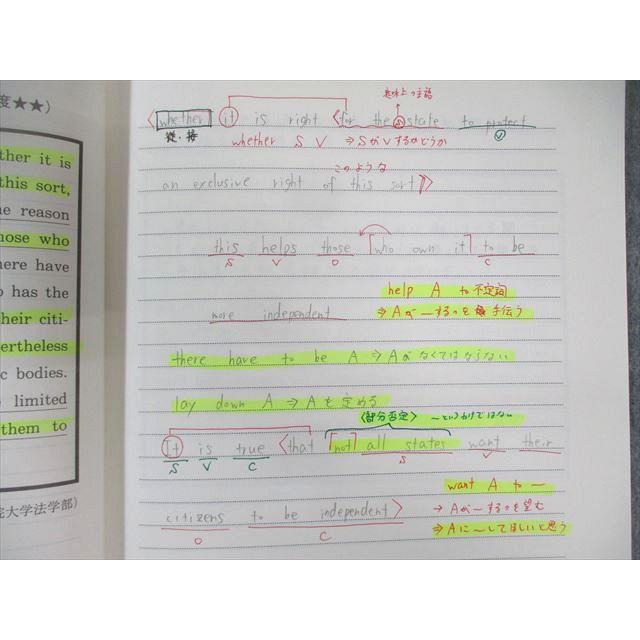 度★★)
ther it is
this sort,
he reason
hose who
here have
o has the
heir citi-
ertheless
c bodies.
limited
them to
院大学法学部)
意味上の主語
〈whether it is right 〈for the state to protect
S
V
従・接
whether S V ⇒ SがVするかどうか
このような
an exclusive right of this sort〉〉
this helps those [who own it] to be
S V O C
help A to 不定詞
more independent
⇒ Aが〜するのを手伝う
there have to be A ⇒ Aがなくてはならない
lay down A ⇒ Aを定める
〈部分否定〉 〜というわけではない
It is true 〈that [not] all states want their
S V C S V
want A to 〜
citizens to be independent〉
→ Aが〜するのを望む
O C
⇒ Aに〜してほしいと思う